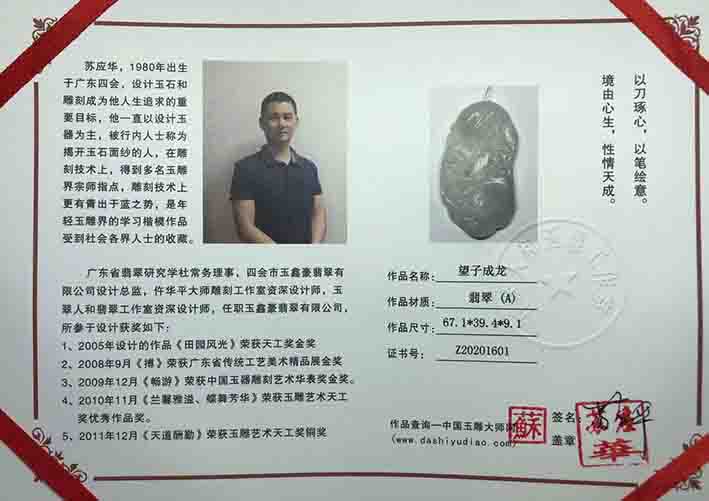 苏应华，1980年出生
于广东四会，设计玉石和
雕刻成为他人生追求的重
要目标，他一直以设计玉
器为主，被行内人士称为
揭开玉石面纱的人，在雕
刻技术上，得到多名玉雕
界宗师指点，雕刻技术上
更有青出于蓝之势，是年
轻玉雕界的学习楷模作品
受到社会各界人士的收藏。
以刀琢心，以笔绘意。
境由心生，性情天成。
广东省翡翠研究学社常务理事、四会市玉鑫豪翡翠有
限公司设计总监，仵华平大师雕刻工作室资深设计师，玉
翠人和翡翠工作室资深设计师，任职玉鑫豪翡翠有限公司，
所参于设计获奖如下：
1、2005年设计的作品《田园风光》荣获天工奖金奖
2、2008年9月《搏》荣获广东省传统工艺美术精品展金奖
3、2009年12月《畅游》荣获中国玉器雕刻艺术华表奖金奖。
4、2010年11月《兰馨雅溢、蝶舞芳华》荣获玉雕艺术天工
奖优秀作品奖。
5、2011年12月《天道酬勤》荣获玉雕艺术天工奖铜奖
作品名称：望子成龙
作品材质：翡翠 (A)
作品尺寸：67.1*39.4*9.1
证书号：Z20201601
作品查询—中国玉雕大师网
(www.dashiyudiao.com)
蘇
签名：
盖章
華